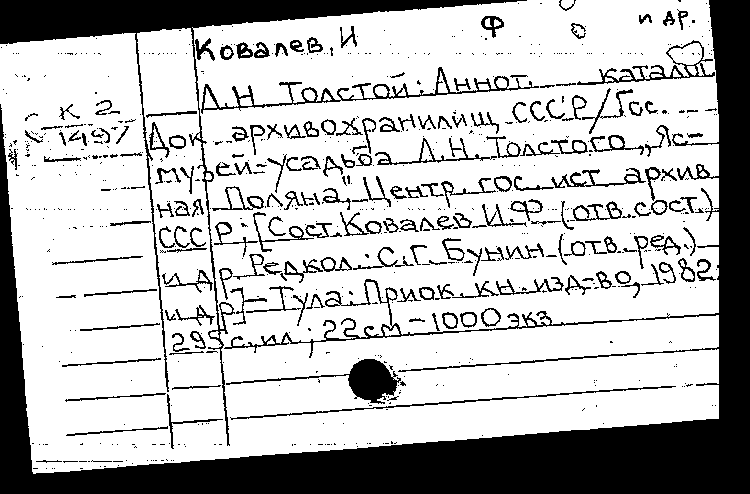 Ковалев, И Ф и др.
Л.Н Толстой: Аннот. каталог
К 2
1497
Док. архивохранилищ СССР/Гос.
музей-усадьба Л.Н. Толстого „Яс-
ная Поляна", Центр. гос. ист архив
СССР; [Сост. Ковалев И.Ф (отв. сост.)
и др, Редкол.: С.Г. Бунин (отв. ред.)
и др] – Тула: Приок. кн. изд-во, 1982.
295 с., ил; 22 см – 1000 экз